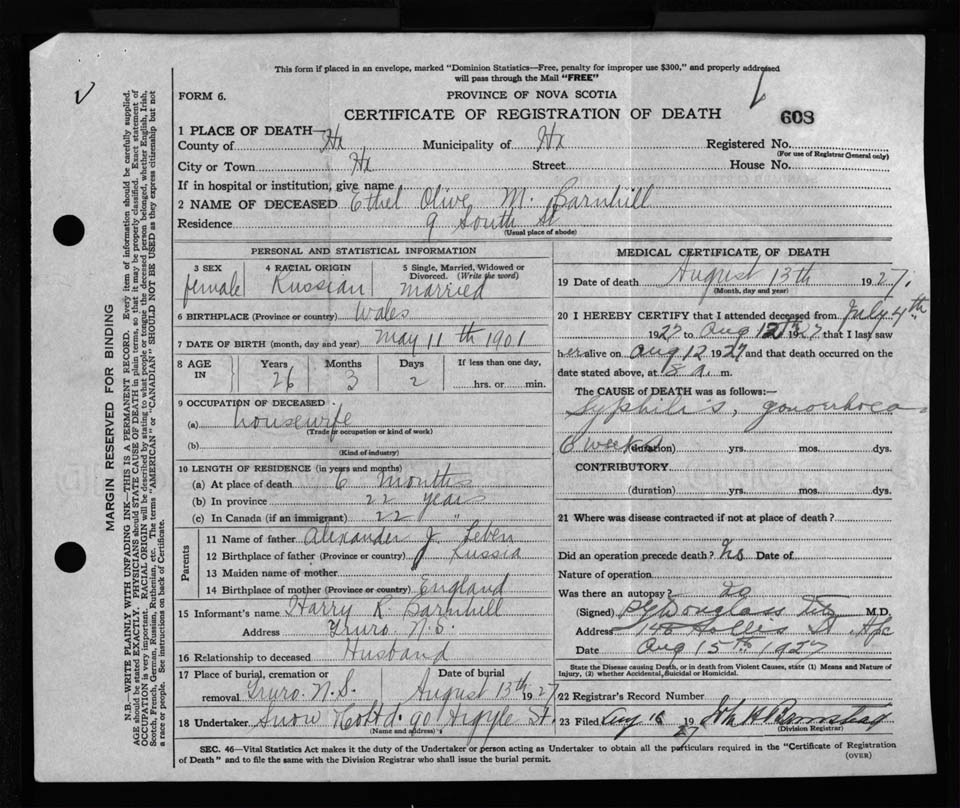 This form if placed in an envelope, marked "Dominion Statistics—Free, penalty for improper use $300," and properly addressed
will pass through the Mail "FREE"
FORM 6.
PROVINCE OF NOVA SCOTIA
CERTIFICATE OF REGISTRATION OF DEATH
608
MARGIN RESERVED FOR BINDING
N.B.—WRITE PLAINLY WITH UNFADING INK—THIS IS A PERMANENT RECORD. Every item of information should be carefully supplied.
AGE should be stated EXACTLY. PHYSICIANS should STATE CAUSE OF DEATH in plain terms, so that it may be properly classified. Exact statement of
OCCUPATION is very important. RACIAL ORIGIN will be described by stating to what people or tongue the deceased person belonged, whether English, Irish,
Scotch, French, German, Russian, Ruthenian, etc. The terms "AMERICAN" or "CANADIAN" SHOULD NOT BE USED as they express citizenship but not
a race or people. See instructions on back of Certificate.
1 PLACE OF DEATH—
County of Hx Municipality of Hx Registered No.
(For use of Registrar General only)
City or Town Hx Street House No.
If in hospital or institution, give name
2 NAME OF DECEASED Ethel Olive M. Barnhill
Residence 9 South St
(Usual place of abode)
PERSONAL AND STATISTICAL INFORMATION
3 SEX female
4 RACIAL ORIGIN Russian
5 Single, Married, Widowed or Divorced. (Write the word) married
6 BIRTHPLACE (Province or County) Wales
7 DATE OF BIRTH (month, day and year) May 11th 1901
8 AGE IN Years 26 Months 3 Days 2 If less than one day, hrs. or min.
9 OCCUPATION OF DECEASED
(a) housewife
(Trade or occupation or kind of work)
(b)
(Kind of industry)
10 LENGTH OF RESIDENCE (in years and months)
(a) At place of death 6 months
(b) In province 22 years
(c) In Canada (if an immigrant) 22 "
Parents
11 Name of father Alixander J. Leben
12 Birthplace of father (Province or country) Russia
13 Maiden name of mother
14 Birthplace of mother (Province or country) England
15 Informant's name Harry R. Barnhill
Address Truro, N.S.
16 Relationship to deceased Husband
17 Place of burial, cremation or removal Truro. N.S. Date of burial August 13th 1927
18 Undertaker Snow Co Ltd. 90 Argyle St.
(Name and address)
MEDICAL CERTIFICATE OF DEATH
19 Date of death August 13th 1927.
(Month, day and year)
20 I HEREBY CERTIFY that I attended deceased from July 4th
1927 to Aug 12th 1927 that I last saw
her alive on Aug 12 1927 and that death occurred on the
date stated above, at 8 a. m.
The CAUSE of DEATH was as follows:—
Syphilis, gonorrhoea
6 weeks (duration) yrs. mos. dys.
CONTRIBUTORY
(duration) yrs. mos. dys.
21 Where was disease contracted if not at place of death?
Did an operation precede death? No Date of
Nature of operation
Was there an autopsy? no
(Signed) Douglass M.D.
Address 148 Hollis St Hfx
Date Aug 15th 1927
State the Disease causing Death, or in death from Violent Causes, state (1) Means and Nature of
Injury, (2) whether Accidental, Suicidal or Homicidal.
22 Registrar's Record Number
23 Filed Aug 16 1927
(Division Registrar)
SEC. 46—Vital Statistics Act makes it the duty of the Undertaker or person acting as Undertaker to obtain all the particulars required in the "Certificate of Registration
of Death" and to file the same with the Division Registrar who shall issue the burial permit.
(OVER)